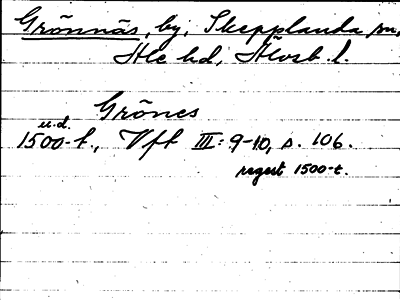 Grönnäs, by, Skepplanda sn,
Ale hd, Älvsb. l.
Grönes
u.d.
1500-t., Vft III: 9-10, s. 106.
regest 1500-t.